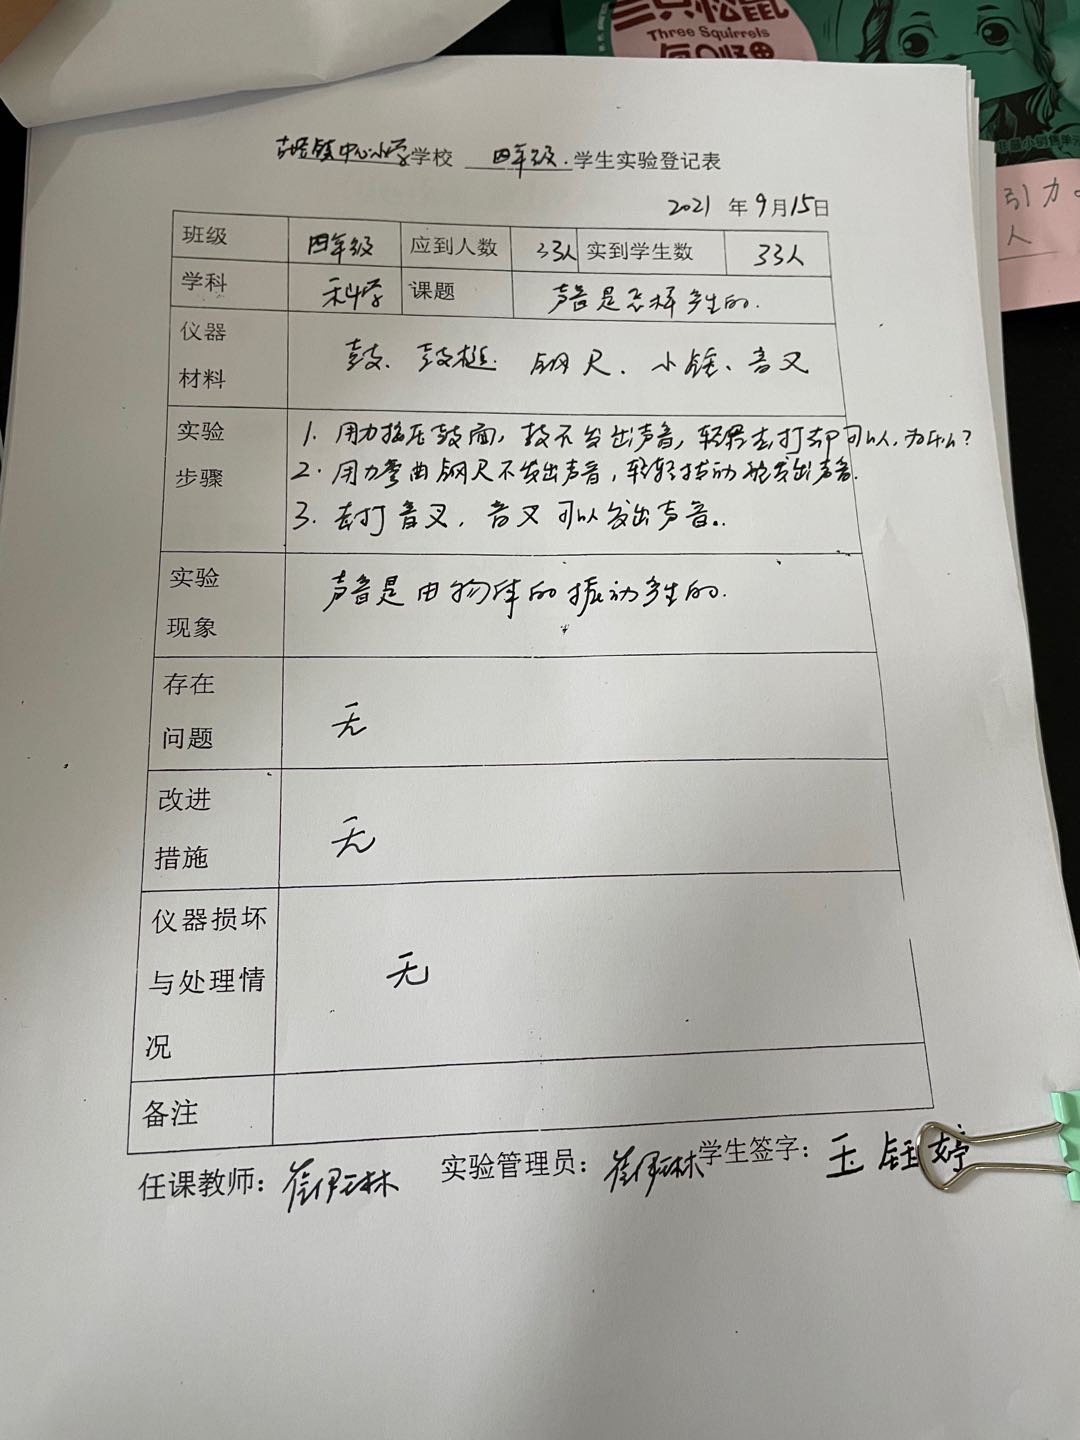 三只松鼠
Three Squirrels
每日坚果
引力
人
镇中心小学学校 四年级.学生实验登记表
2021年9月15日
班级 四年级 应到人数 33人 实到学生数 33人
学科 科学 课题 声音是怎样产生的.
仪器
材料
鼓、鼓槌 钢尺、小锤、音叉
实验
步骤
1. 用力按压鼓面,鼓不发出声音,轻轻去打却可以,为什么?
2. 用力弯曲钢尺不发出声音,轻轻拨动能发出声音.
3. 去打音叉,音叉可以发出声音..
实验
现象
声音是由物体的振动产生的.
存在
问题
无
改进
措施
无
仪器损坏
与处理情
况
无
备注
任课教师: 崔伊琳 实验管理员: 崔伊琳 学生签字: 王钰婷